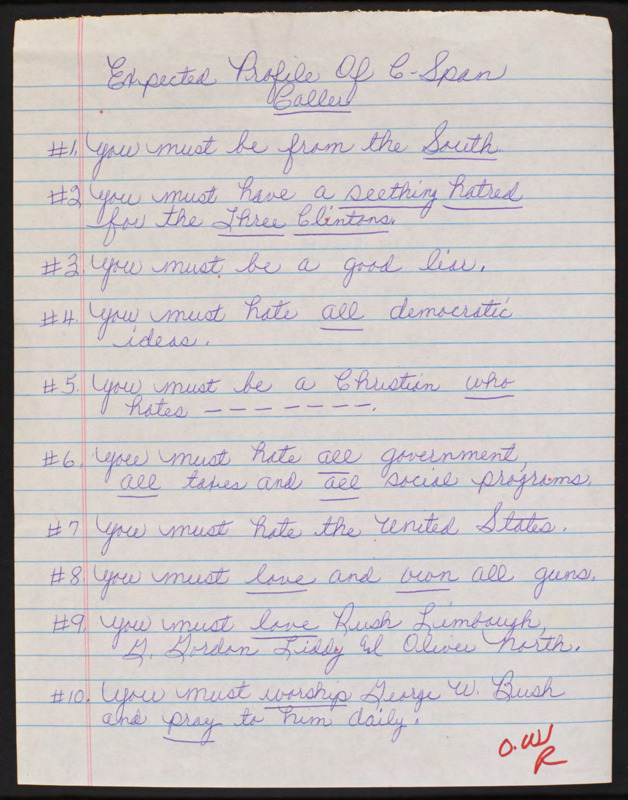 Expected Profile Of C-Span
Caller
#1. You must be from the South.
#2 You must have a seething hatred
for the Three Clintons.
#3. You must be a good liar.
#4. You must hate all democratic
ideas.
#5. You must be a Christian who
hates – – – – – – –.
#6. You must hate all government,
all taxes and all social programs.
#7 You must hate the United States.
#8. You must love and own all guns.
#9. You must love Rush Limbaugh,
G. Gordon Liddy & Oliver North.
#10. You must worship George W. Bush
and pray to him daily.
O.W
R